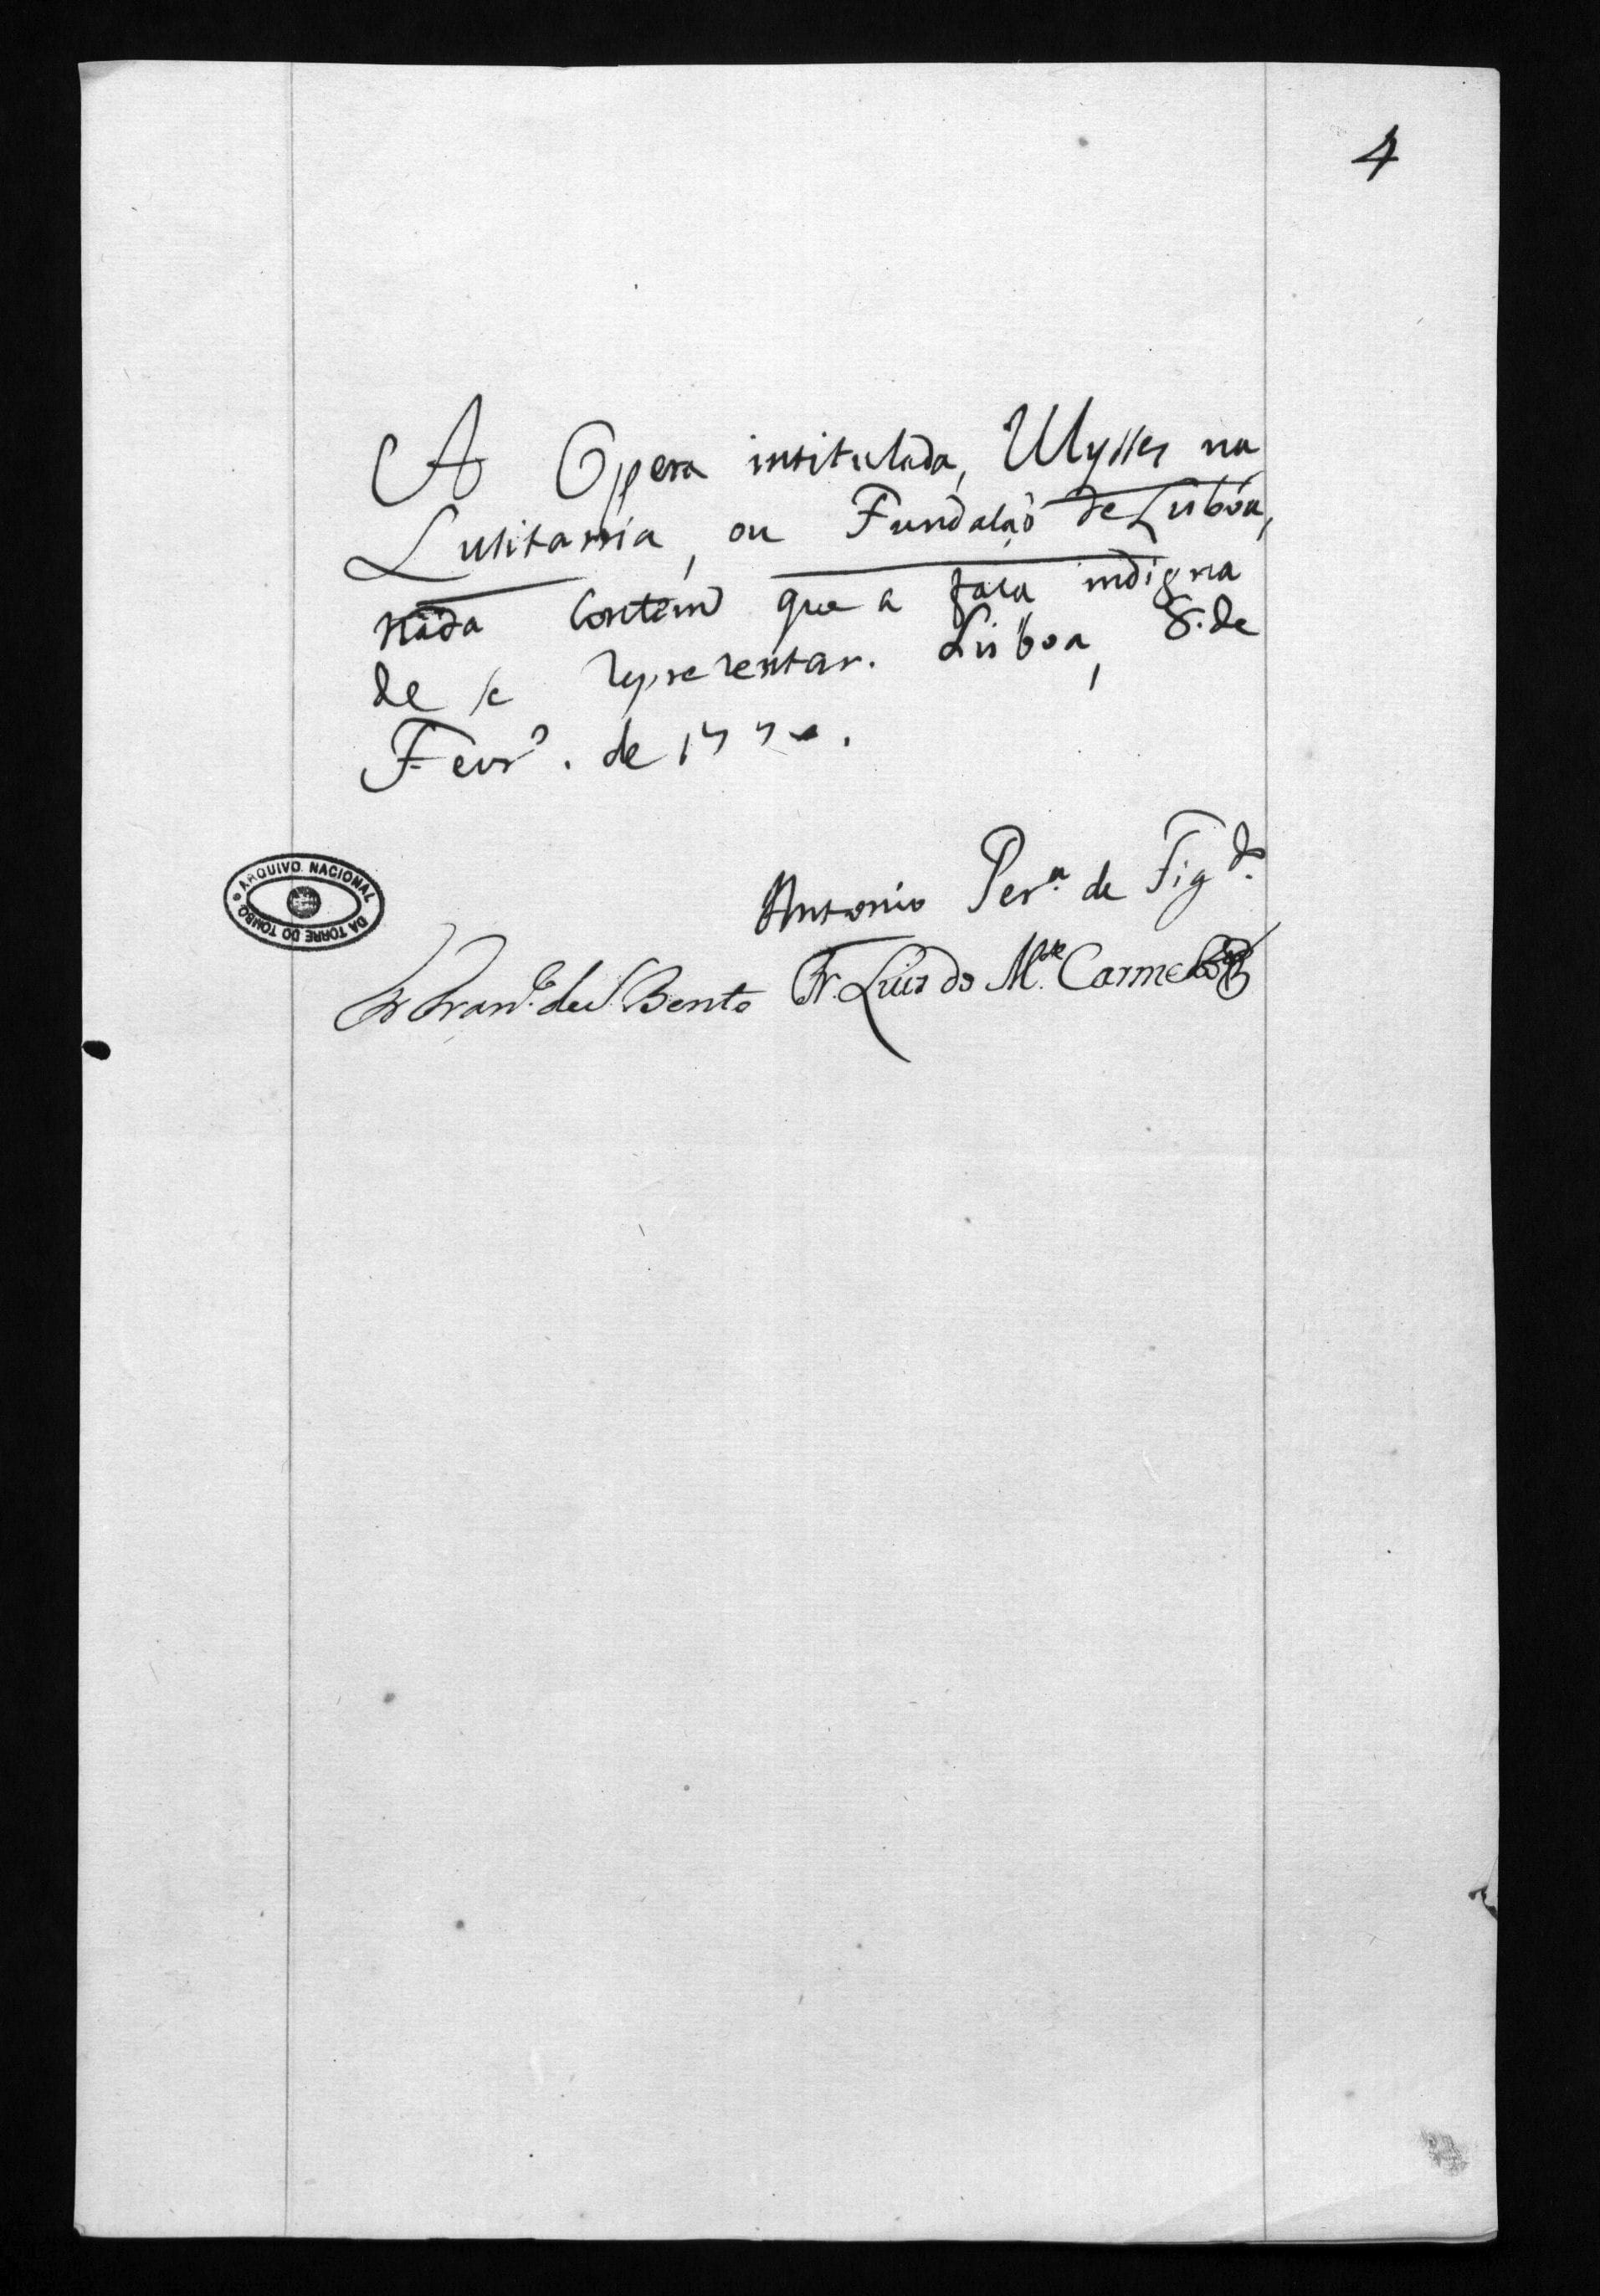 4
A Opera intitulada, Ulysses na
Lusitania, ou Fundaçaõ de Lisboa,
nada contem que a faça indigna
de se representar. Lisboa, 8. de
Fevrº. de
Antonio Perª. de Figdº.
Fr. Franco. de S. Bento Fr. Luis do Mte. Carmelo
ARQUIVO NACIONAL
DA TORRE DO TOMBO